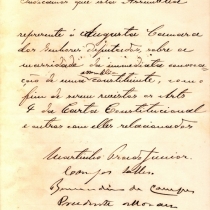 Indicamos que esta Assemblea
represente á Augusta Camara
dos Senhores Deputados sobre a
necessidade da immediata convoca
ção de uma constituinte, com o
fim de serem revistos os Arts
4 da Carta Constitucional
e outros com elles relacionados
Martinho Prado Junior.
Campos Salles
Bernardino de Campos
Prudente de Moraes